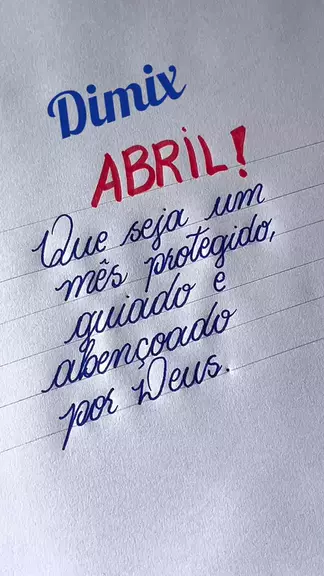 Dimix
ABRIL!
Que seja um
mês protegido,
guiado e
abençoado
por Deus.